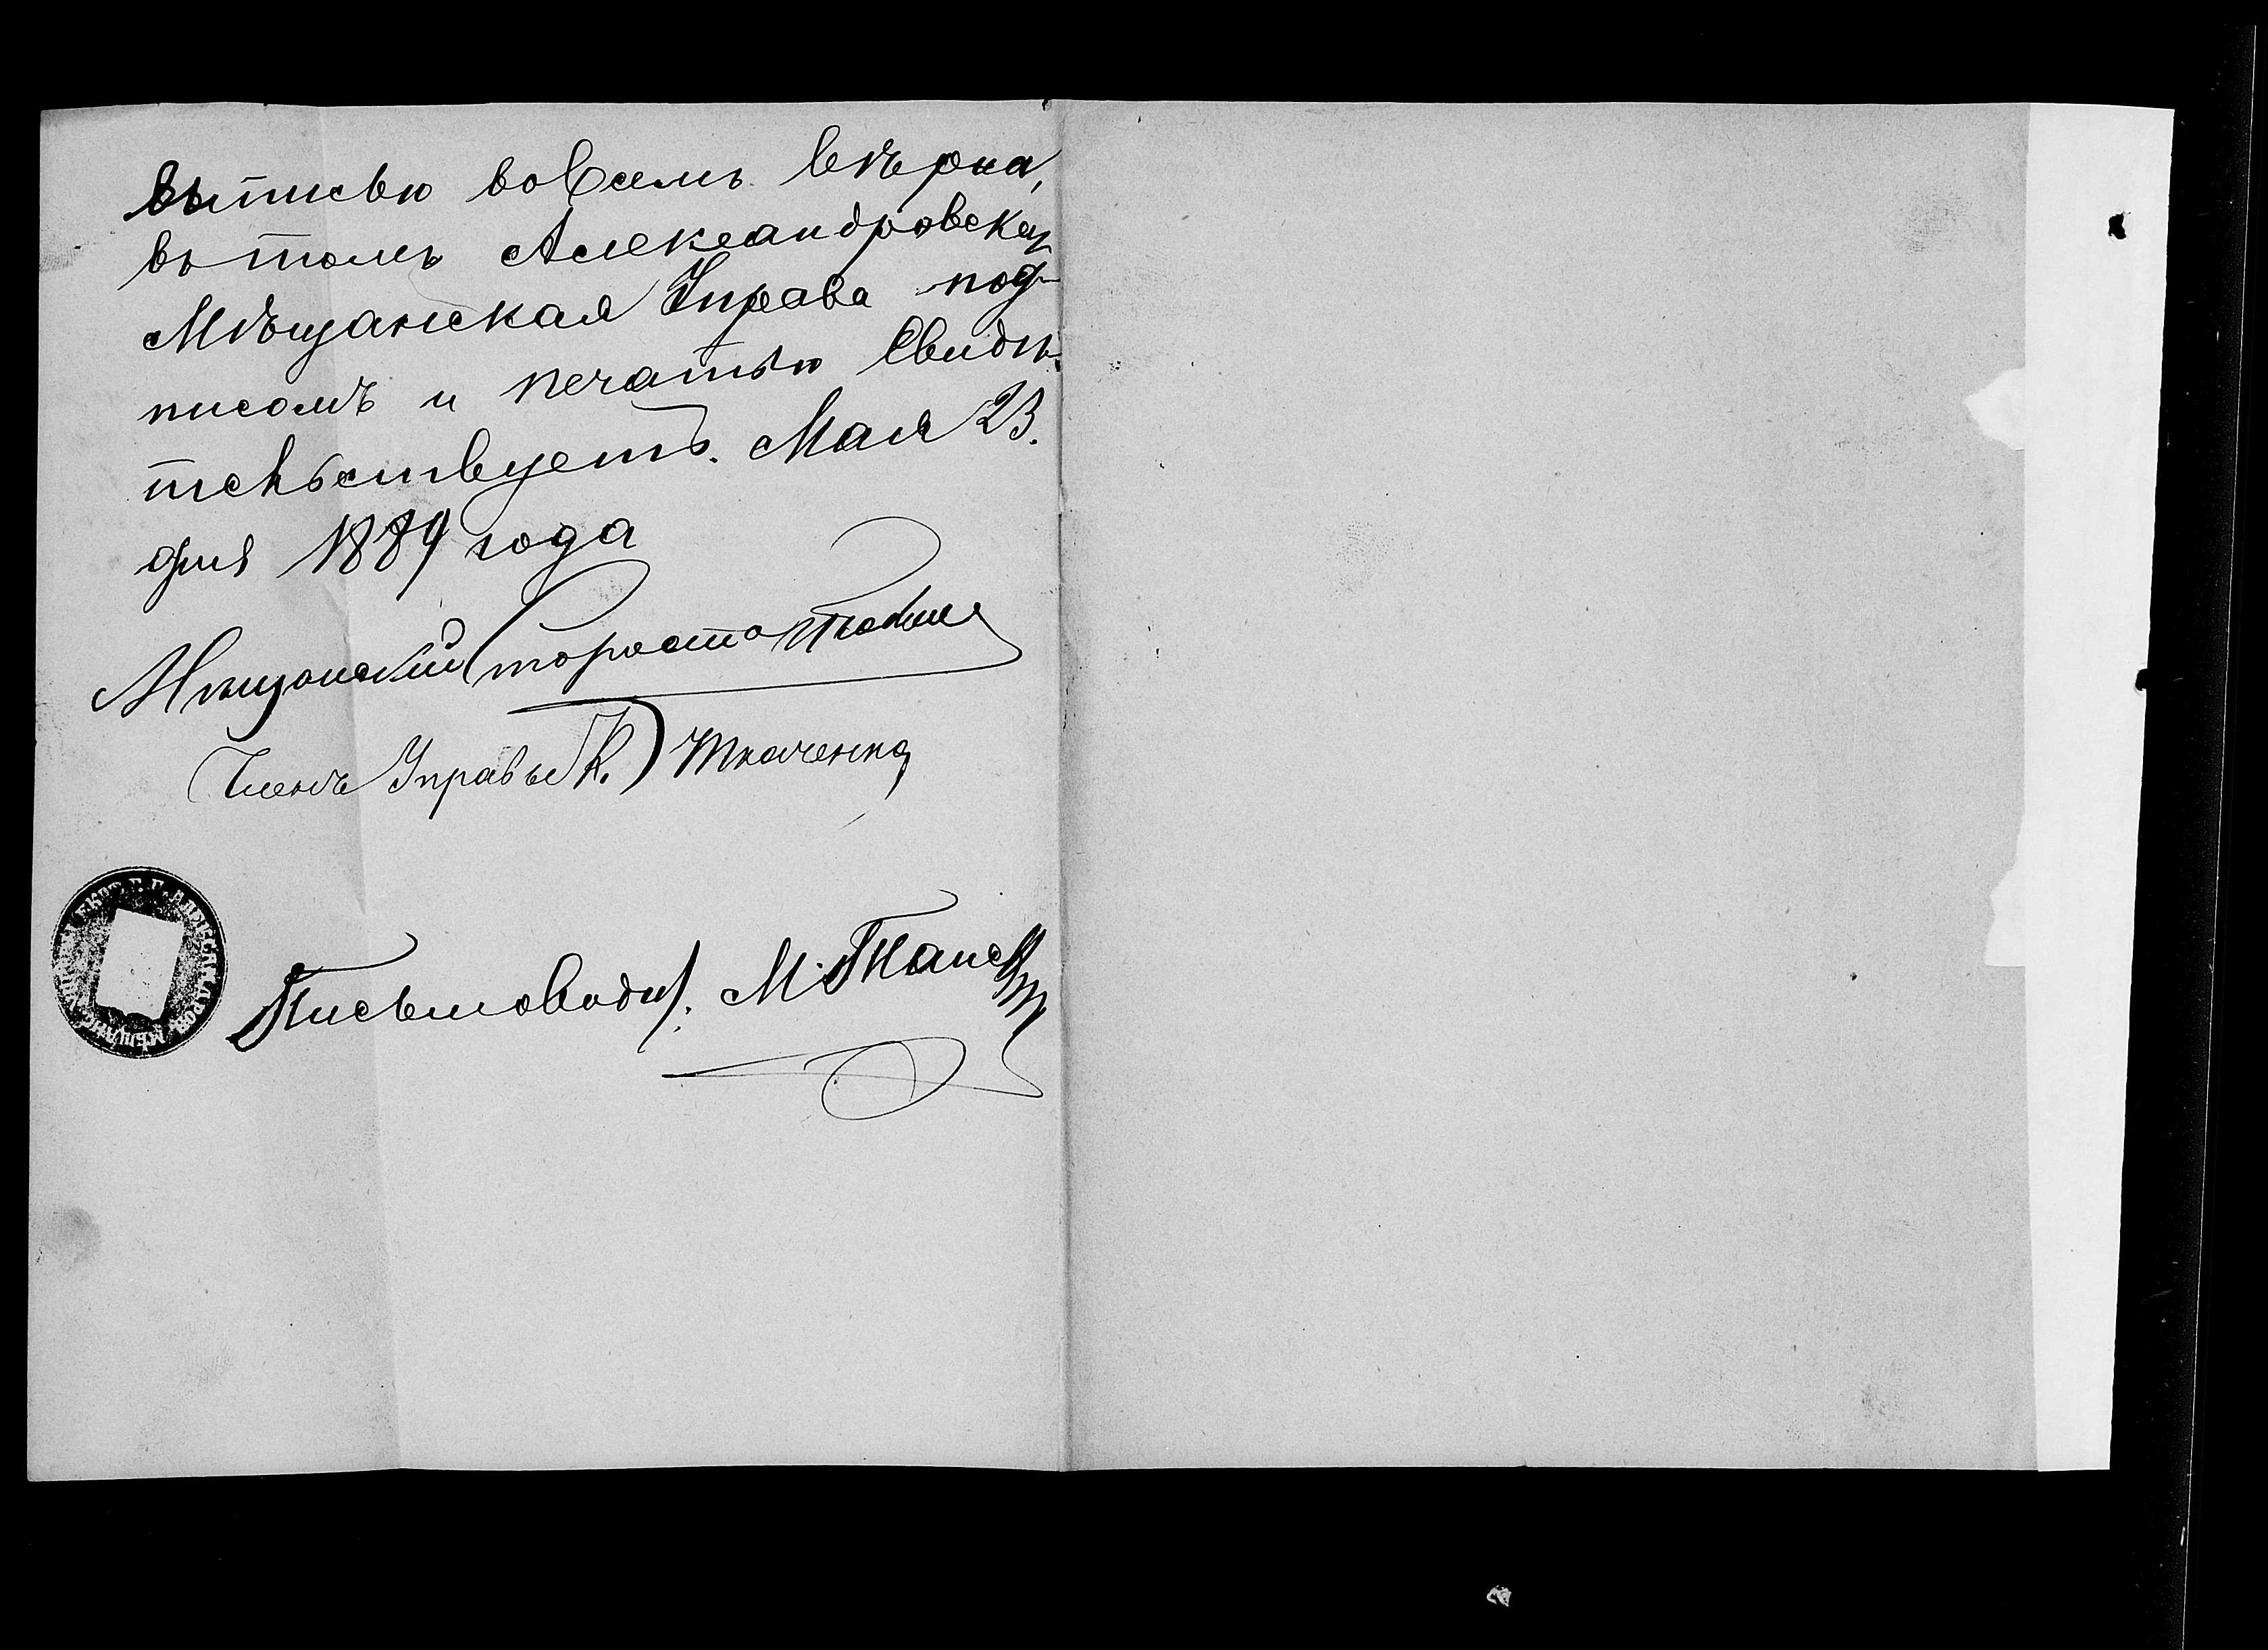 выписью во всемъ вѣрна,
въ томъ Александровская
Мѣщанская Управа под-
писомъ и печатью свидѣ-
тельствуетъ. Мая 23.
дня 1889 года
Мѣщанскій Староста
Членъ Управы К. Ткаченко
Письмоводи. М.